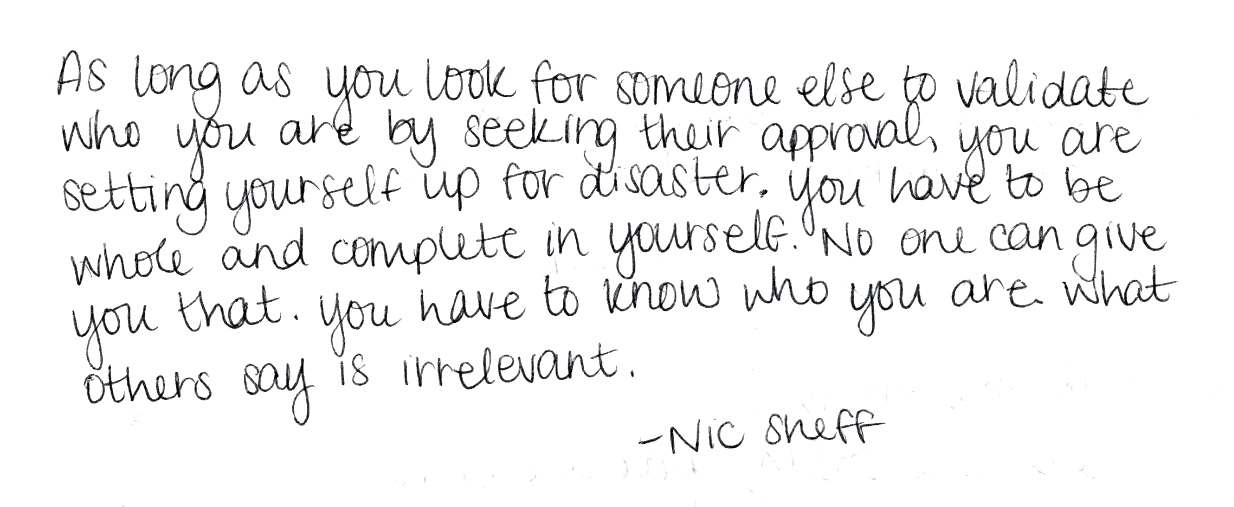 As long as you look for someone else to validate
who you are by seeking their approval, you are
setting yourself up for disaster. You have to be
whole and complete in yourself. No one can give
you that. You have to know who you are. What
others say is irrelevant.
-Nic Sheff